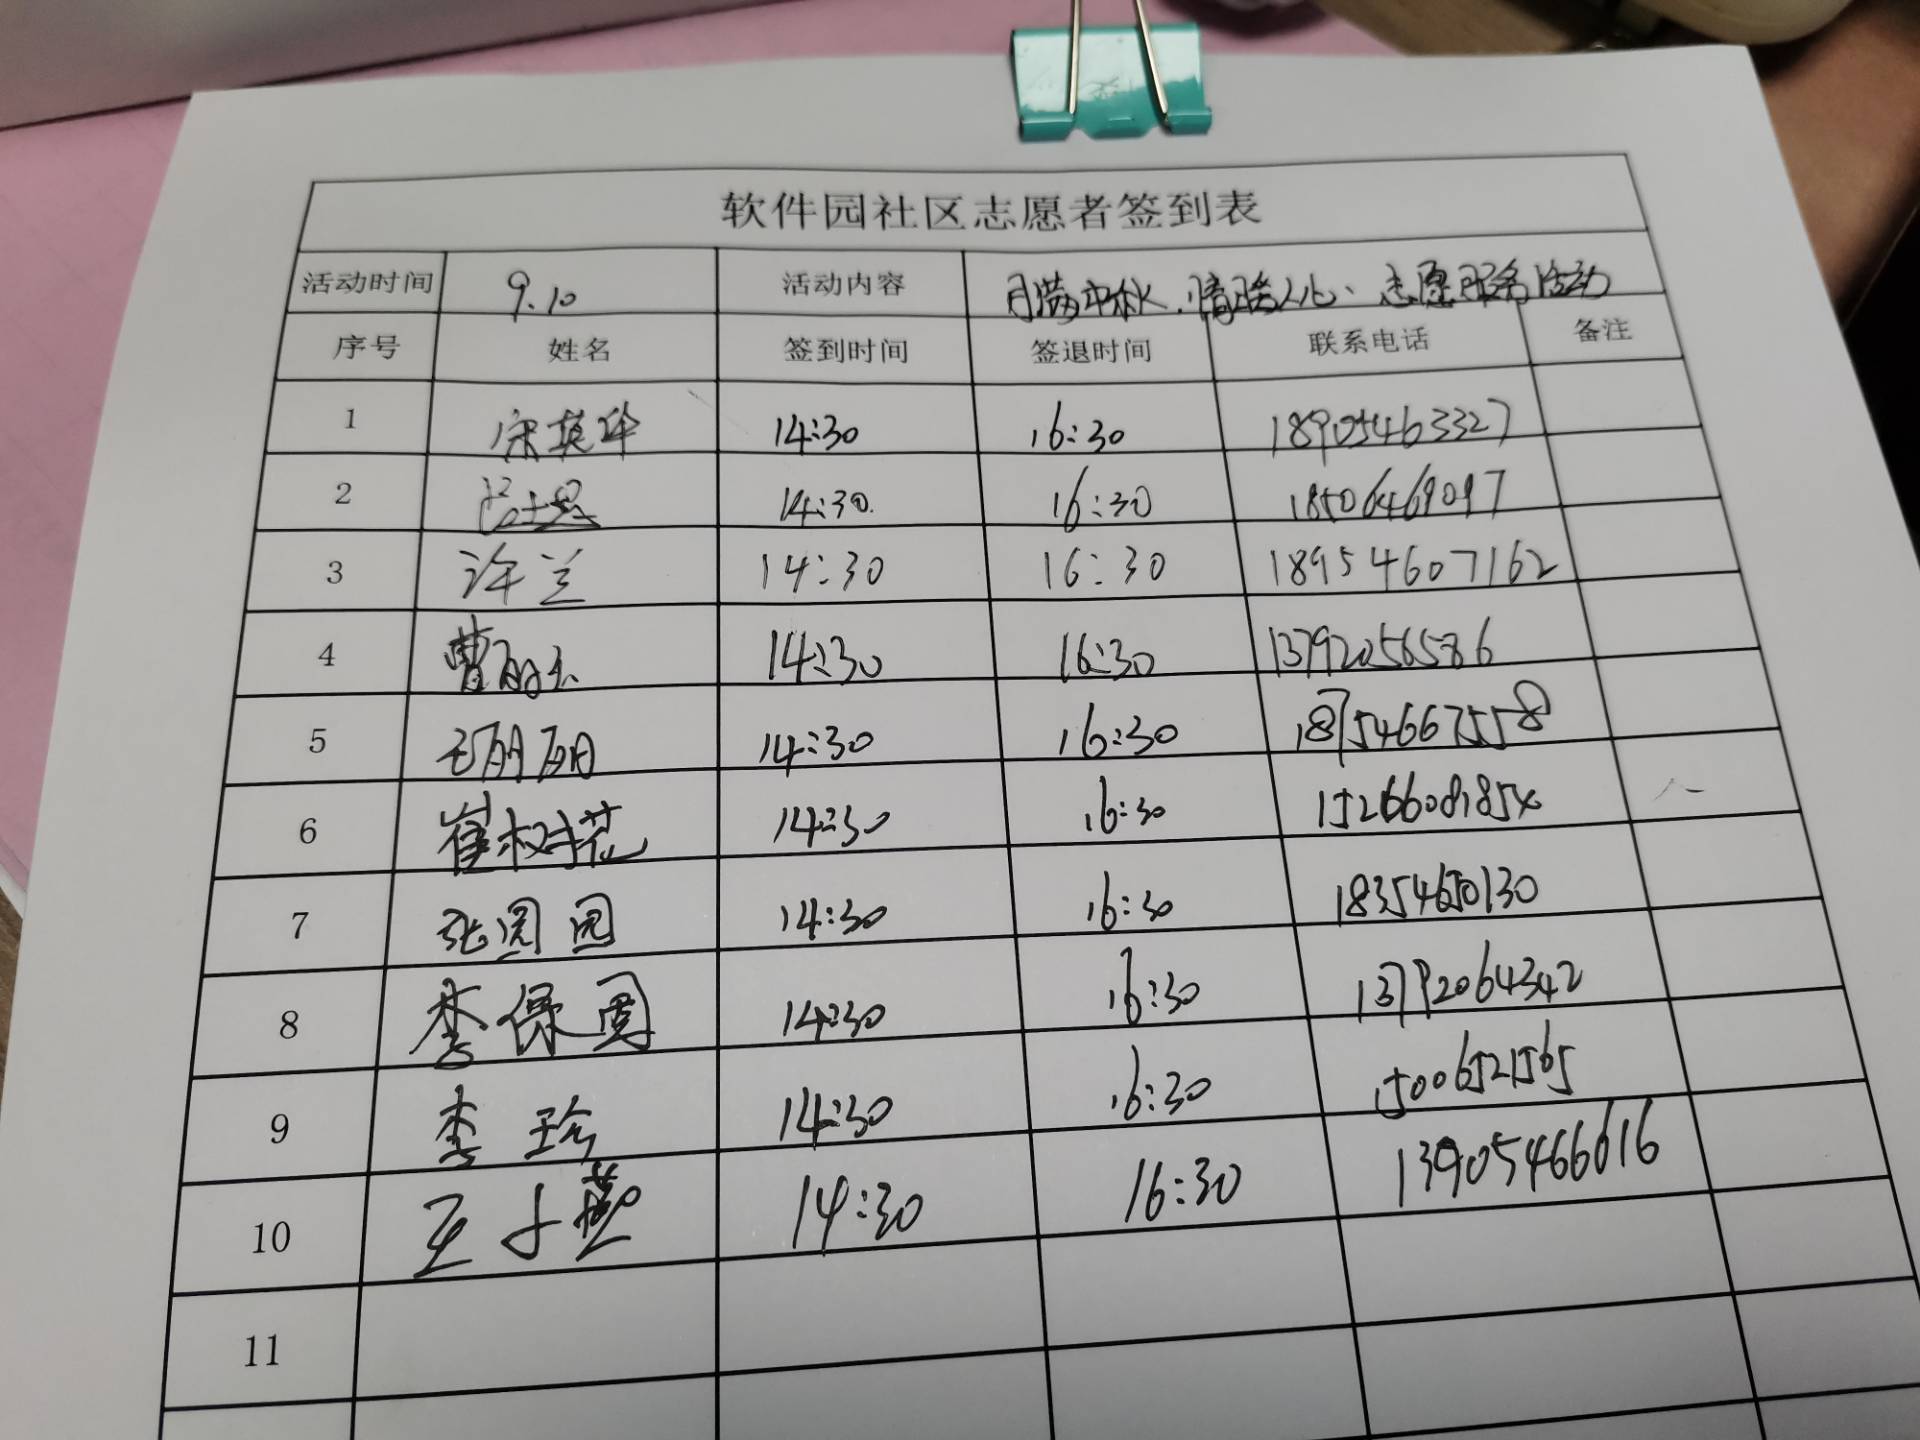 软件园社区志愿者签到表
活动时间 9.10 活动内容 月满中秋.情暖人心、志愿服务活动
序号 姓名 签到时间 签退时间 联系电话 备注
1 宋英华 14:30 16:30 18905463327
2 14:30. 16:30 18506469097
3 许兰 14:30 16:30 18954607162
4 曹丽玉 14:30 16:30 13792056586
5 王丽丽 14:30 16:30 18754667558
6 崔树花 14:30 16:30
7 张园园 14:30 16:30 18354650130
8 李保国 14:30 16:30 13792064342
9 李珍 14:30 16:30 15006521565
10 王小燕 14:30 16:30 13905466616
11